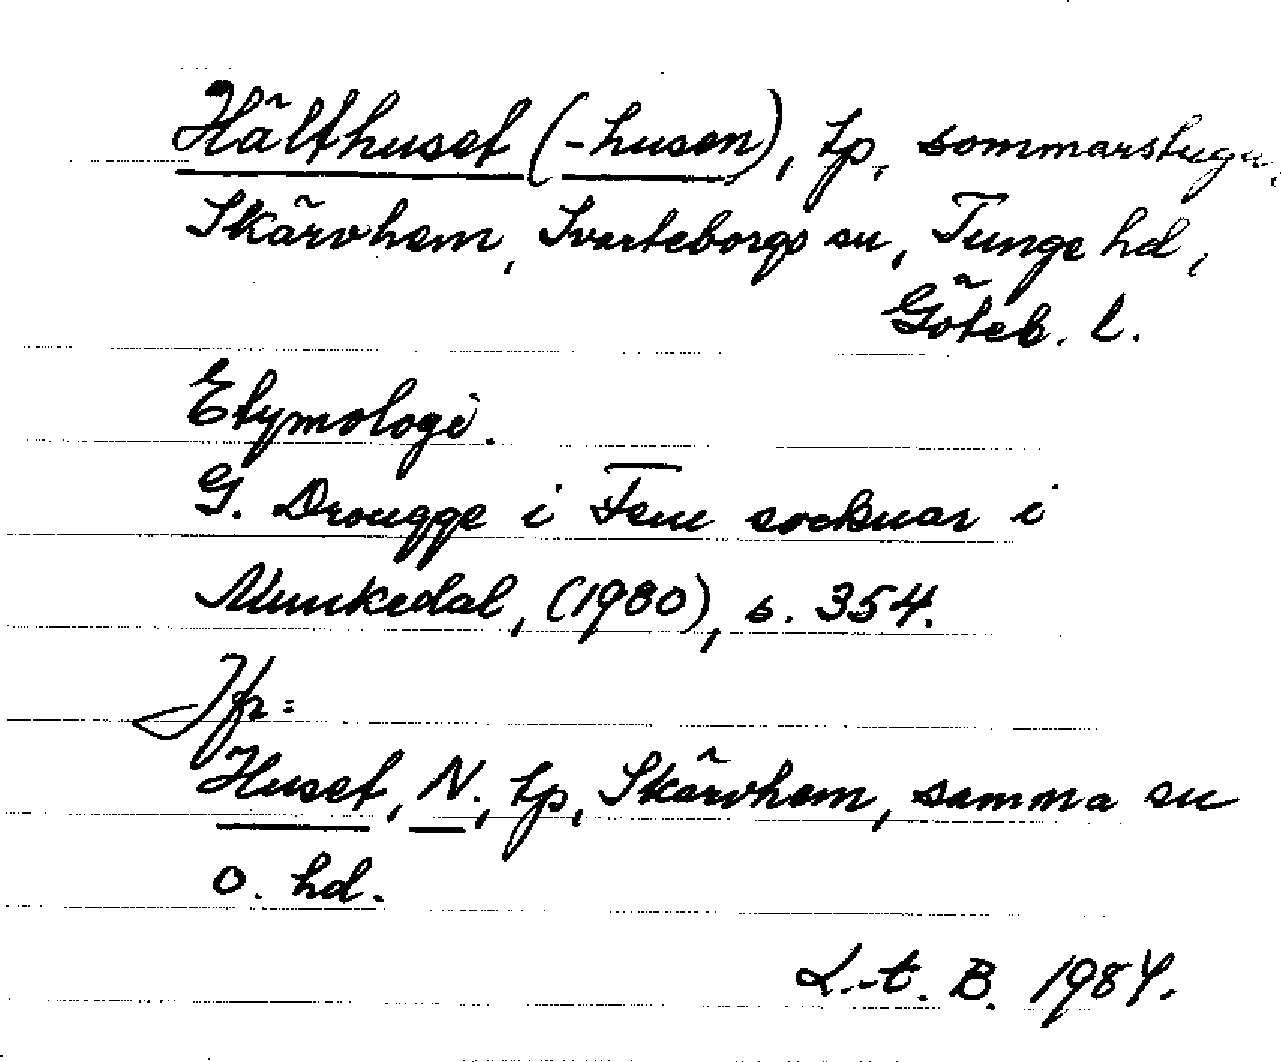 Hälthuset (-husen), tp, sommarstuga,
Skärvhem, Svarteborgs sn, Tunge hd,
Göteb. l.
Etymologi.
G. Drougge i Fem socknar i
Munkedal, (1980), s. 354.
Jfr:
Huset, N., tp, Skärvhem, samma sn
o. hd.
L-t. B. 1984.